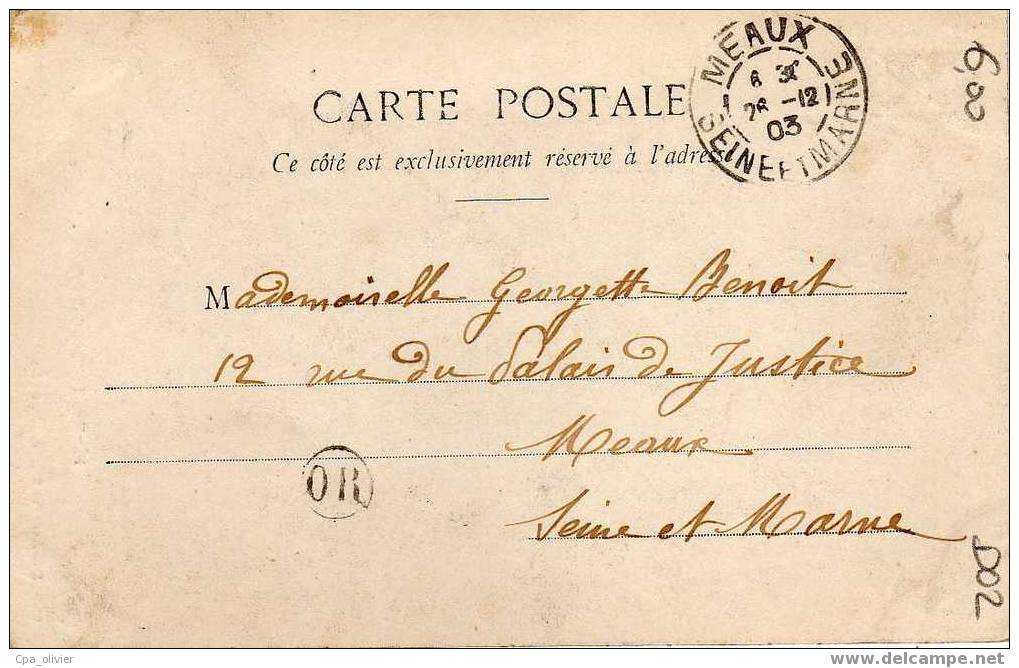 MEAUX
26 -12
03
SEINE ET MARNE
6,00
CARTE POSTALE
Ce côté est exclusivement réservé à l'adresse
Mademoiselle Georgette Benoit
12 rue du Palais de Justice
Meaux
OR
Seine et Marne
D02
Cpa_olivier
www.delcampe.net